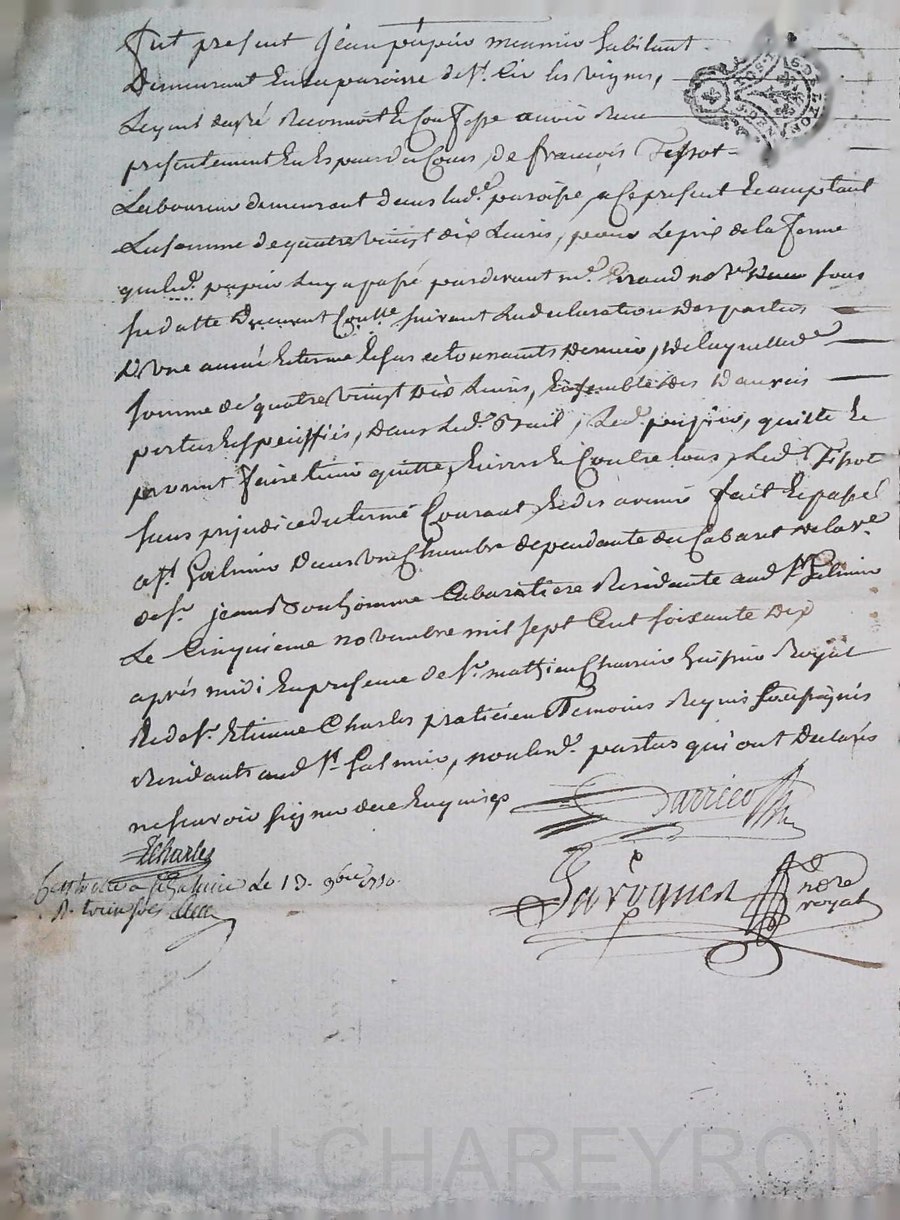 fut present jean pupier meunier habitant
Demeurant en la paroisse de St. Cir les vignes,
Lequel de gré Reconnoit et Confesse avoir Receu
presentement En Especes de Cours de francois Tissot
Laboureur demeurant dans lad.e paroisse, a ce present et acceptant
La somme de quatre vingt dix Livres, pour le prix de la ferme
que led. pupier luy a passé pardevant me. not.re sous
sa datte suivant la declaration des parties
D'une année et terme Echus a la toussaints Dernier, De laquelle
somme de quatre vingt Dix Livres, Ensemble des Danrées
portées Especiffiées, dans led. Bail, Led. pupier, quitte et
promet faire tenir quitte, Envers et Contre tous, led. Tissot
sans prejudice du terme Courant, et de's avenir fait et passé
a St. Galmier Dans une Chambre dependante du Cabaret de la ve.
de Sr. jean Bonhomme Cabaretiere Residante aud. St. Galmier
Le Cinquieme novembre mil sept Cent soixante dix
aprés midi En presence de Sr. mathieu huissier Royal
Et de Sr. Etienne Charles praticien Temoins Requis Soussignés
Residants aud. St. Galmier, non led. parties qui ont Declarés
ne scavoir signer de ce Enquises
Echarles
St. Galmier le 13. 9bre 1770.
R. treize sols
note
royal
Pascal CHAREYRON